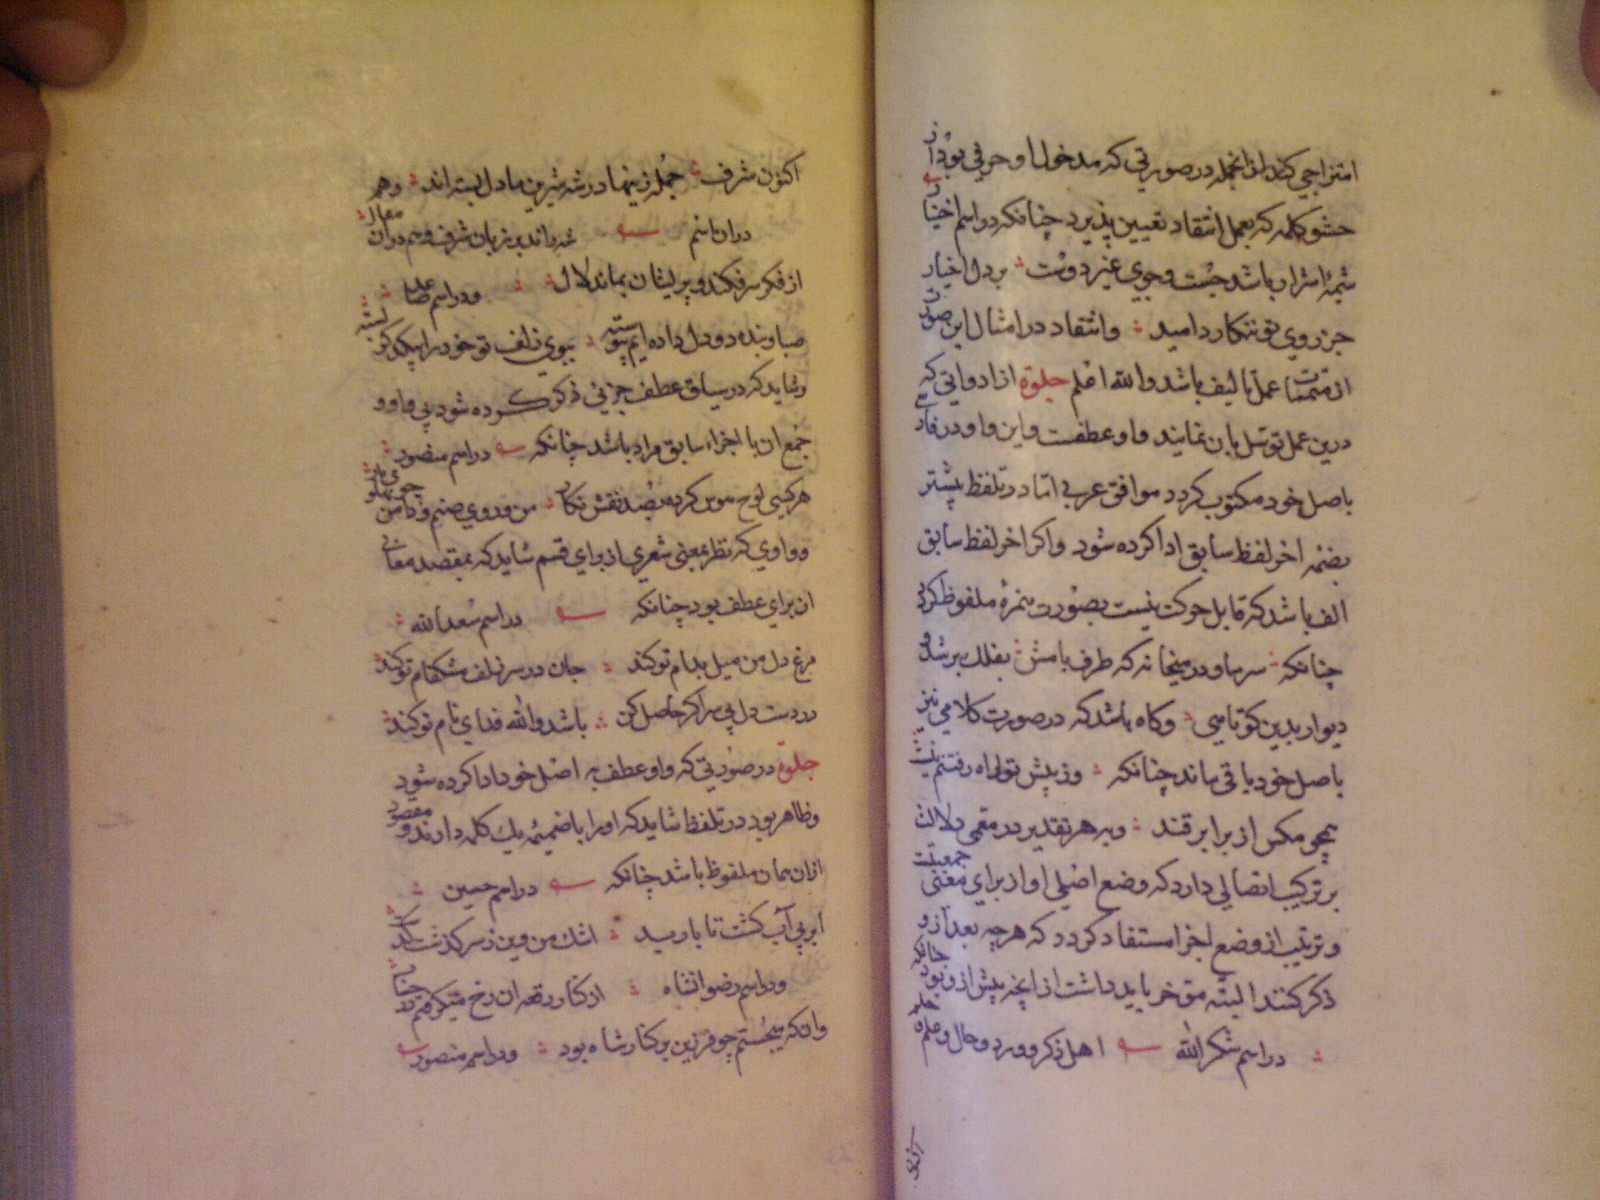 امتزاجی کند از انجمله در صورتی که مدخول او حرفی بود از
حشو کلمه که بعمل انتقاد تعیین پذیرد چنانکه در اسم اختیار
شیمهٔ اشرار باشد جست و جوی عیز دوست بر دل اخیار
جز روی تو ننکارد امید و انتقاد در امثال این صورت
از متممات عمل تالیف باشد والله اعلم جلوة از ادواتی که
درین عمل توسل بان نمایند واو عطفست و این واو در فارسی
باصل خود مکتوب کردد موافق عربی اما در تلفظ بیشتر
بضمه اخر لفظ سابق ادا کرده شود و اکر اخر لفظ سابق
الف باشد که قابل حرکت نیست بصورت همزهٔ ملفوظ کردد
چنانکه سر ما و در میخانه که طرف بامش بفلک بر شد و
دیوار بدین کوتاهی و کاه باشد که در صورت کلامی نیز
باصل خود باقی ماند چنانکه وز پیش تو راه رفتنم نیست
همچو مکس از برابر قند و بر هر تقدیر در معمی دلالت
بر ترکیب اتصالی دارد که وضع اصلی او از برای معنی جمعیتست
و ترتیب از وضع اجزا مستفاد کردد که هر چه بعد از و
ذکر کنند البته مؤخر باید داشت از انچه پیش از و بود چنانکه
در اسم شکرالله اهل ذکر و ورد و حال و علم و حلم
اکنون شرف جمله زینها در شه شیرین ما دل بسته اند و هم
دران اسم غیر ماند بر زبان شرف و هم دران مقال
از فکر سر فکند و پریشان بماند لال و در اسم
صبا و بنده دو دل داده ایم ببوی زلف تو خود را بیکدکر بسته
و شاید که در سیاق عطف چیزی ذکر کرده شود بی واو و
جمع ان با اجزاء سابق مراد باشد چنانکه در اسم منصور
هر کسی لوح هوس کرده بصد نقش نکار من و روی صنم
و واوی که نظر بمعنی شعری از برای قسم شاید که بمقصد معمائی
ان برای عطف بود چنانکه در اسم سعدالله
مرغ دل من میل بدام تو کند جان در سر زلف مشکفام تو کند
در دست دل بی سر اکر حاصل کن باشد والله فدای نام تو کند
جلوة در صورتی که واو عطف به اصل خود ادا کرده شود
و ظاهر بود در تلفظ شاید که او را با ضمیمه یک کلمه دارند و مقصود
ازان همان ملفوظ باشد چنانکه در اسم حسین
ابر پی آب کشت تا بارید اشک من وین ز سر کذشت
و در اسم رضوانشاه از کنار رقعه ان رخ میکرفتم
وانکه میجستم چو فرزین بر کنار شاه بود و در اسم منصور